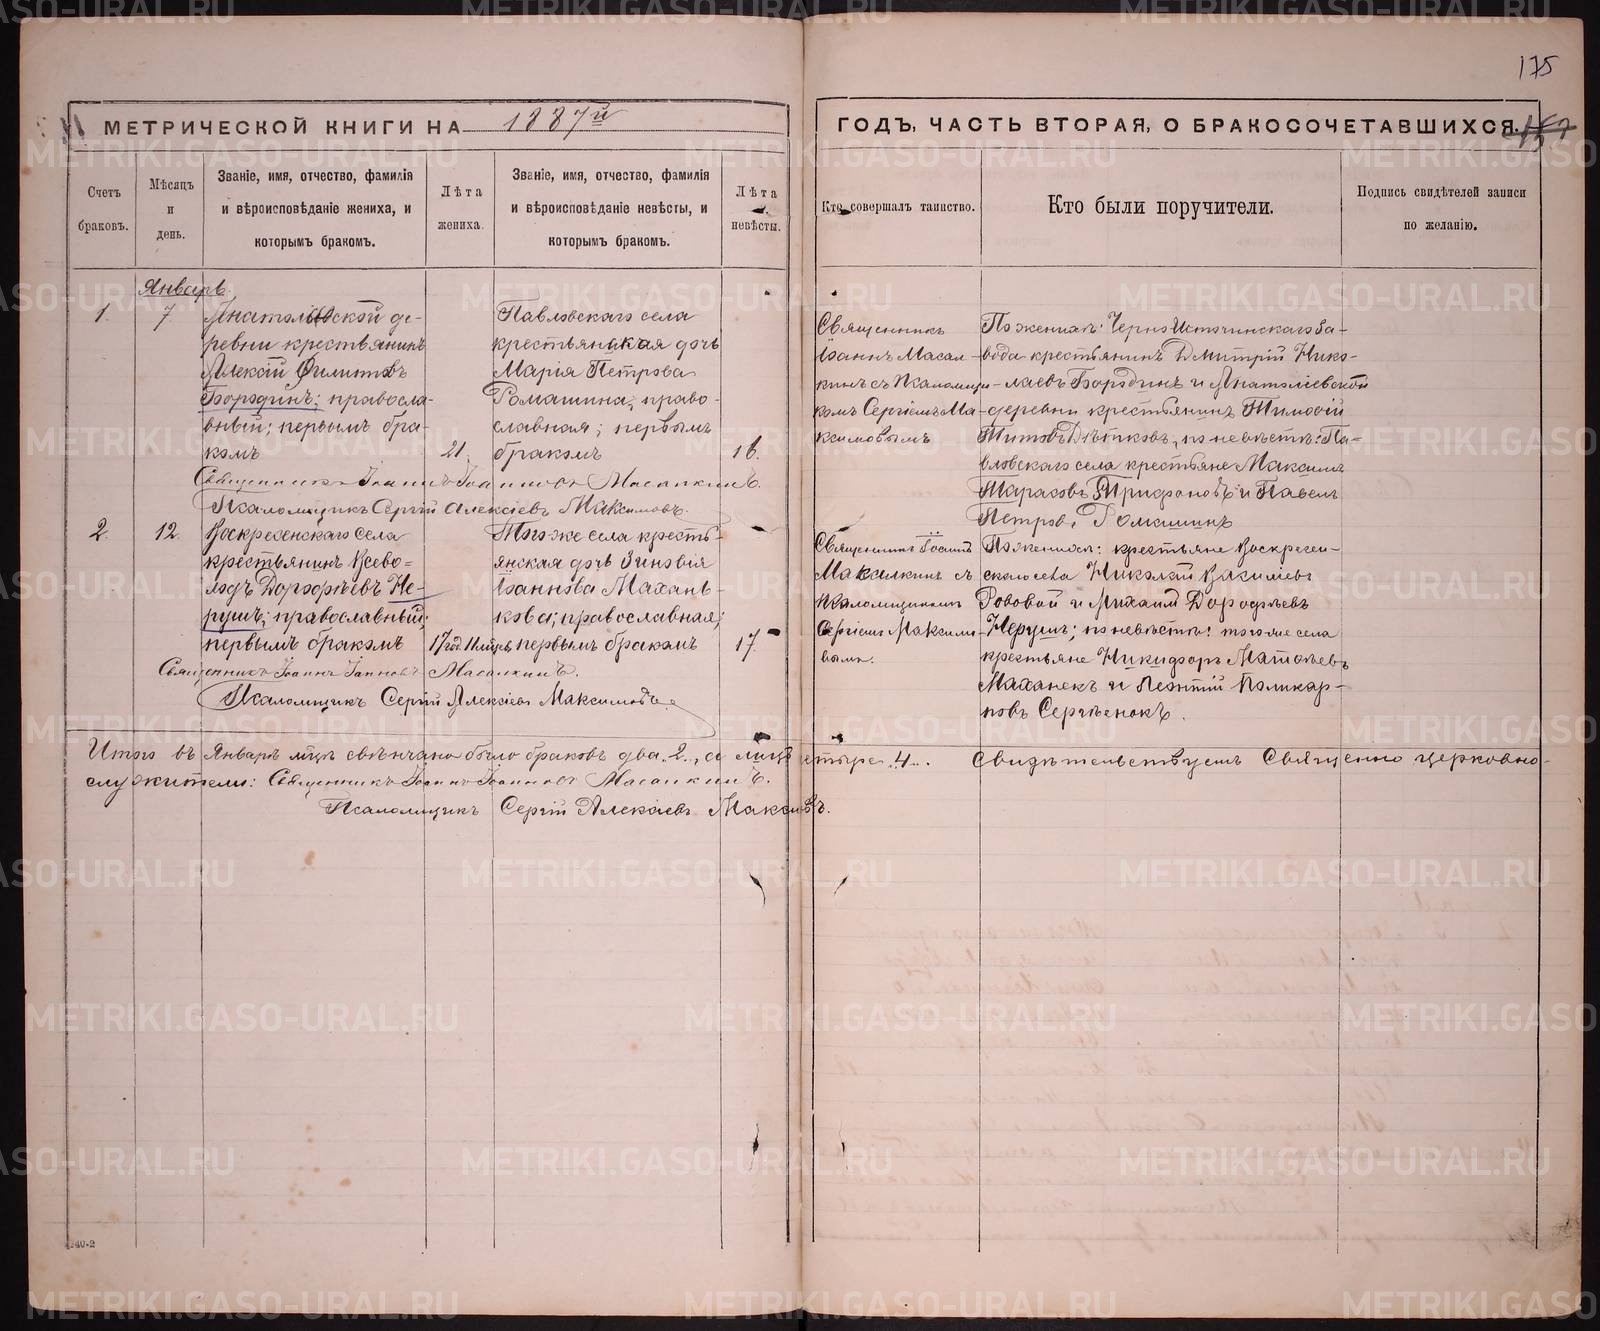 175
МЕТРИЧЕСКОЙ КНИГИ НА 1887й
ГОДЪ, ЧАСТЬ ВТОРАЯ, О БРАКОСОЧЕТАВШИХСЯ.
Счетъ браковъ.
Мѣсяцъ и день.
Званіе, имя, отчество, фамилія
и вѣроисповѣданіе жениха, и
которымъ бракомъ.
Лѣта жениха.
Званіе, имя, отчество, фамилія
и вѣроисповѣданіе невѣсты, и
которымъ бракомъ.
Лѣта невѣсты.
Кто совершалъ таинство.
Кто были поручители.
Подпись свидѣтелей записи
по желанію.
Январь.
1. 7.
Анатольевской де-
ревни крестьянинъ
Алексій Филиповъ
Бородинъ; правосла-
вный; первымъ бра-
комъ
21.
Павловскаго села
крестьянская дочь
Марія Петрова
Ромашина, право-
славная; первымъ
бракомъ
16.
Священникъ
Іоаннъ Масал-
кинъ съ псаломщи-
комъ Сергіемъ Ма-
ксимовымъ
По женихѣ: Черноисточинскаго за-
вода крестьянинъ Дмитрій Нико-
лаевъ Бородинъ и Анатоліевской
деревни крестьянинъ Тимофій
Титовъ, по невѣстѣ: Па-
вловскаго села крестьяне Максимъ
Тарасовъ Трифоновъ и Павелъ
Петровъ Ромашинъ
Священникъ Іоаннъ Іоанновъ Масалкинъ.
Псаломщикъ Сергій Алексіевъ Максимовъ.
2. 12.
Воскресенскаго села
крестьянинъ Всево-
лодъ Дорофѣевъ Не-
рушъ; православный;
первымъ бракомъ
17 год. 11 мцевъ
Того же села кресть-
янская дочь Зиновія
Іоаннова Маханъ-
кова; православная;
первымъ бракомъ
17.
Священникъ Іоаннъ
Масалкинъ съ
псаломщикомъ
Сергіемъ Максимо-
вымъ.
По женихѣ: крестьяне Воскресен-
скаго села Николай Василіевъ
Рововой и Михаилъ Дорофѣевъ
Нерушъ; по невѣстѣ: того же села
крестьяне Никифоръ Матвѣевъ
Маханекъ и Леонтій Поликар-
повъ Сергѣенокъ.
Священникъ Іоаннъ Іоанновъ Масалкинъ.
Псаломщикъ Сергій Алексіевъ Максимовъ.
Итого въ Январѣ мцѣ свѣнчано было браковъ два 2, а лицъ четыре 4. Свидѣтельствуемъ Священно церковно-
служители: Священникъ Іоаннъ Іоанновъ Масалкинъ.
Псаломщикъ Сергій Алексіевъ Максимовъ.
240-2
METRIKI.GASO-URAL.RU